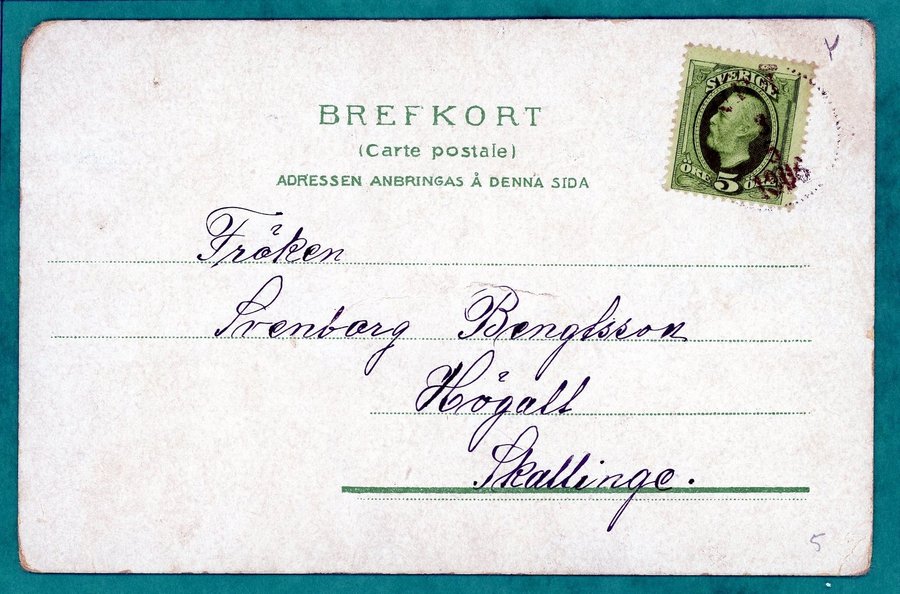 BREFKORT
(Carte postale)
ADRESSEN ANBRINGAS Å DENNA SIDA
SVERIGE
ÖRE 5 ÖRE
1905
Fröken
Svenborg Bengtsson
Högalt
Skällinge.
5